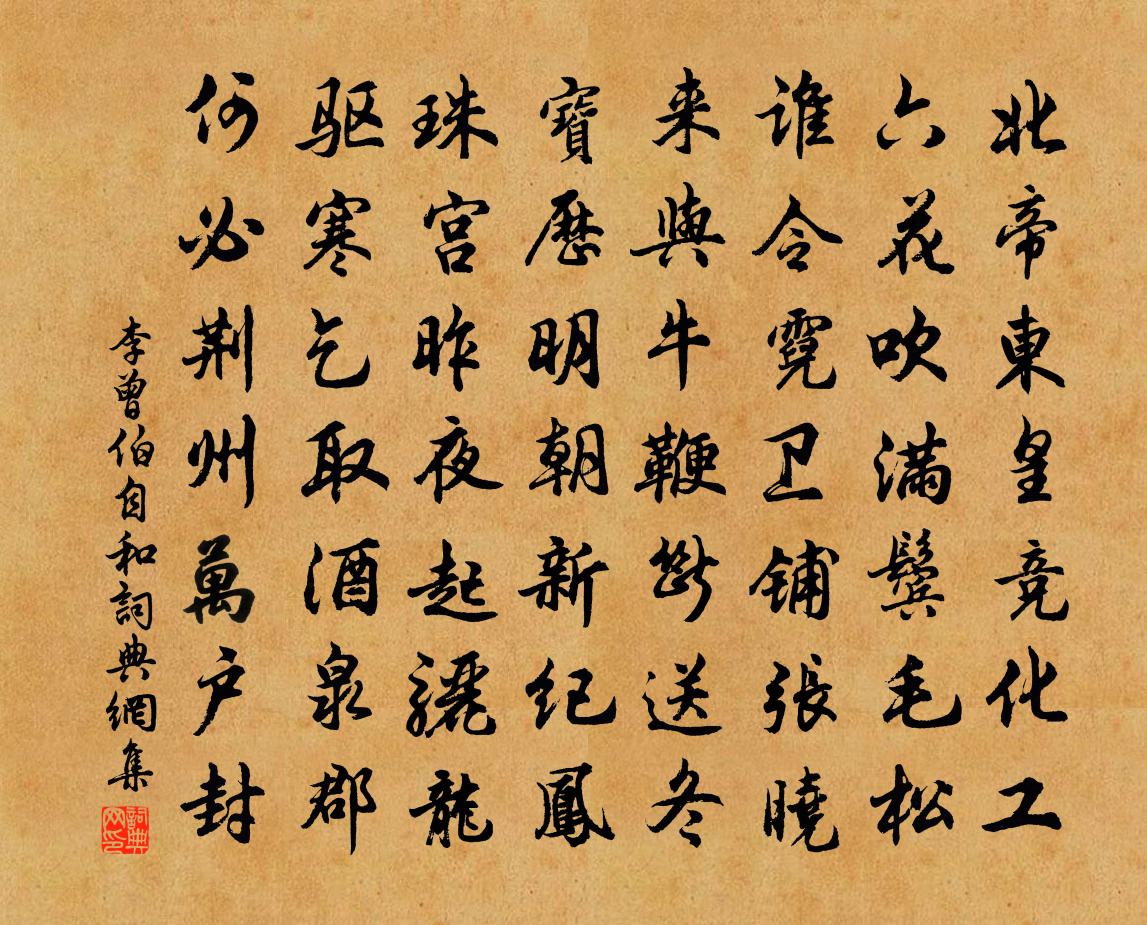 北帝東皇竞化工
六花吹满鬓毛松
谁令霓卫铺張曉
来與牛鞭斷送冬
寶歷明朝新纪鳳
珠宫昨夜起驪龍
驱寒乞取酒泉郡
何必荆州萬户封
李曾伯自和詞典網集
詞典网印